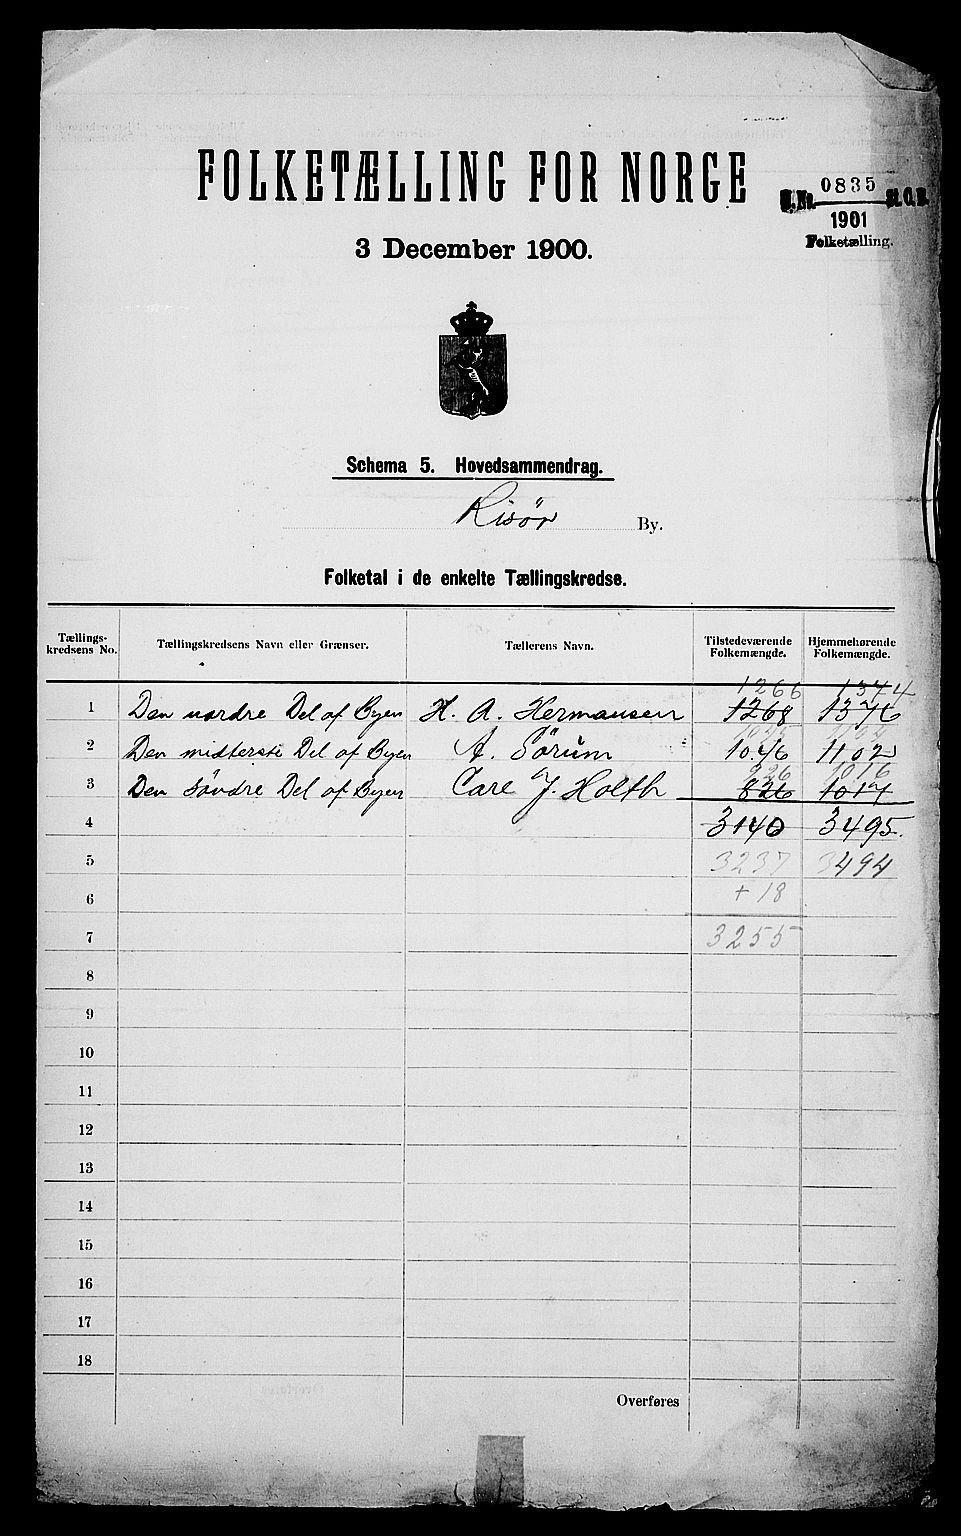 FOLKETÆLLING FOR NORGE
0835
1901
Folketælling.
3 December 1900.
Schema 5. Hovedsammendrag.
Risör By.
Folketal i de enkelte Tællingskredse.
Tællings-kredsens No. Tællingskredsens Navn eller Grænser. Tællerens Navn. Tilstedeværende Folkemængde. Hjemmehørende Folkemængde.
1266 1374
1 Den nordre Del af Byen H. A. Hermansen 1268 1376
2 Den midterste Del af Byen A. Sörum 1046 1102
926 1016
3 Den Söndre Del af Byen Carl J. Holth 826 1017
4 3140 3495.
5 3237 3494
6 + 18
7 3255
8
9
10
11
12
13
14
15
16
17
18
Overføres